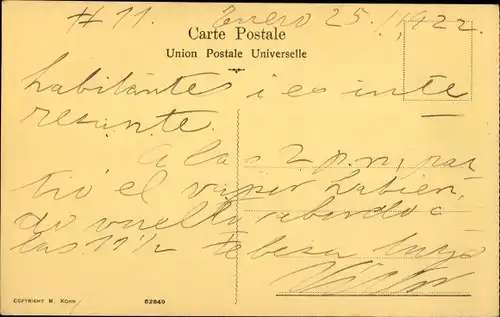 #11. Enero 25. 1922.
Carte Postale
Union Postale Universelle
habitantes i es inte
resante.
A las 2 p.m. par
tió el vapor habien
do vuelto abordo a
las 11 1/2 te besa
COPYRIGHT M. KOHN
52849